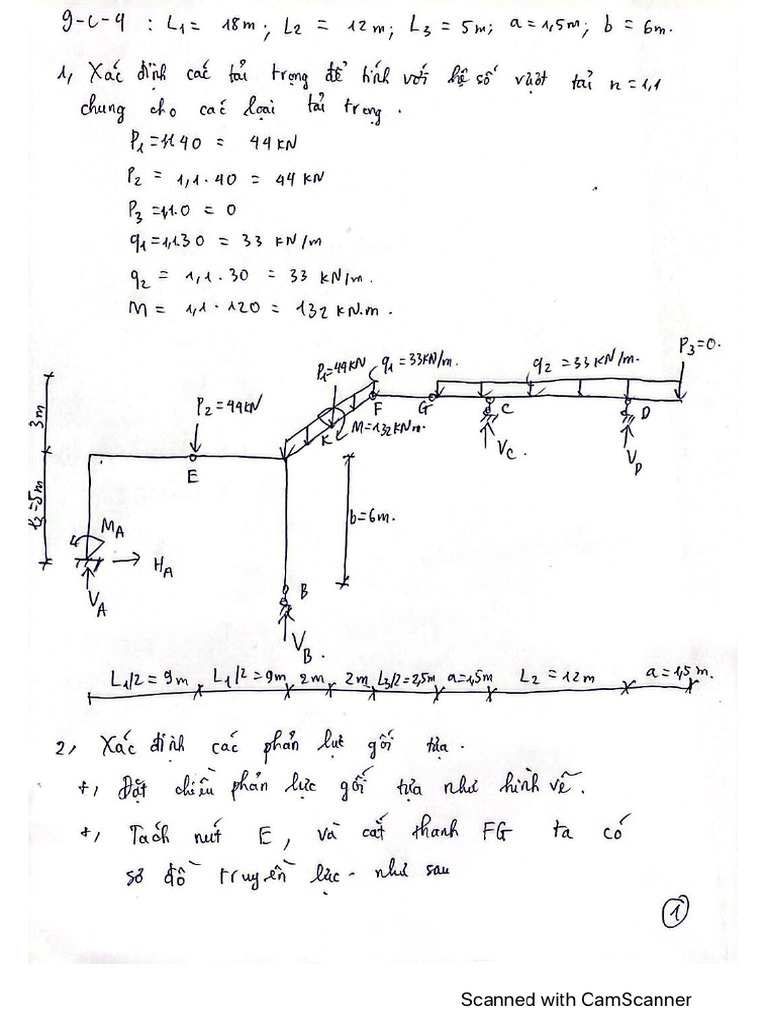 9-c-4 : L₁ = 18m; L₂ = 12m; L₃ = 5m; a = 1,5m; b = 6m.
1, Xác định các tải trọng để tính với hệ số vượt tải n = 1,1
chung cho các loại tải trọng.
P₁ = 1,1.40 = 44 KN
P₂ = 1,1.40 = 44 KN
P₃ = 1,1.0 = 0
q₁ = 1,1.30 = 33 KN/m
q₂ = 1,1.30 = 33 KN/m.
M = 1,1.120 = 132 KN.m.
P₃=0.
P₁=44KN
q₁=33KN/m.
q₂=33KN/m.
P₂=44KN
3m
F
G
C
D
K
M=132KNm.
E
V_C.
V_D
L₃=5m
b=6m.
M_A
H_A
V_A
B
V_B.
L₁/2=9m
L₁/2=9m
2m
2m
L₃/2=2,5m
a=1,5m
L₂=12m
a=1,5m.
2, Xác định các phản lực gối tựa.
+, Đặt chiều phản lực gối tựa như hình vẽ.
+, Tách nút E, và cắt thanh FG ta có
sơ đồ truyền lực - như sau
1
Scanned with CamScanner